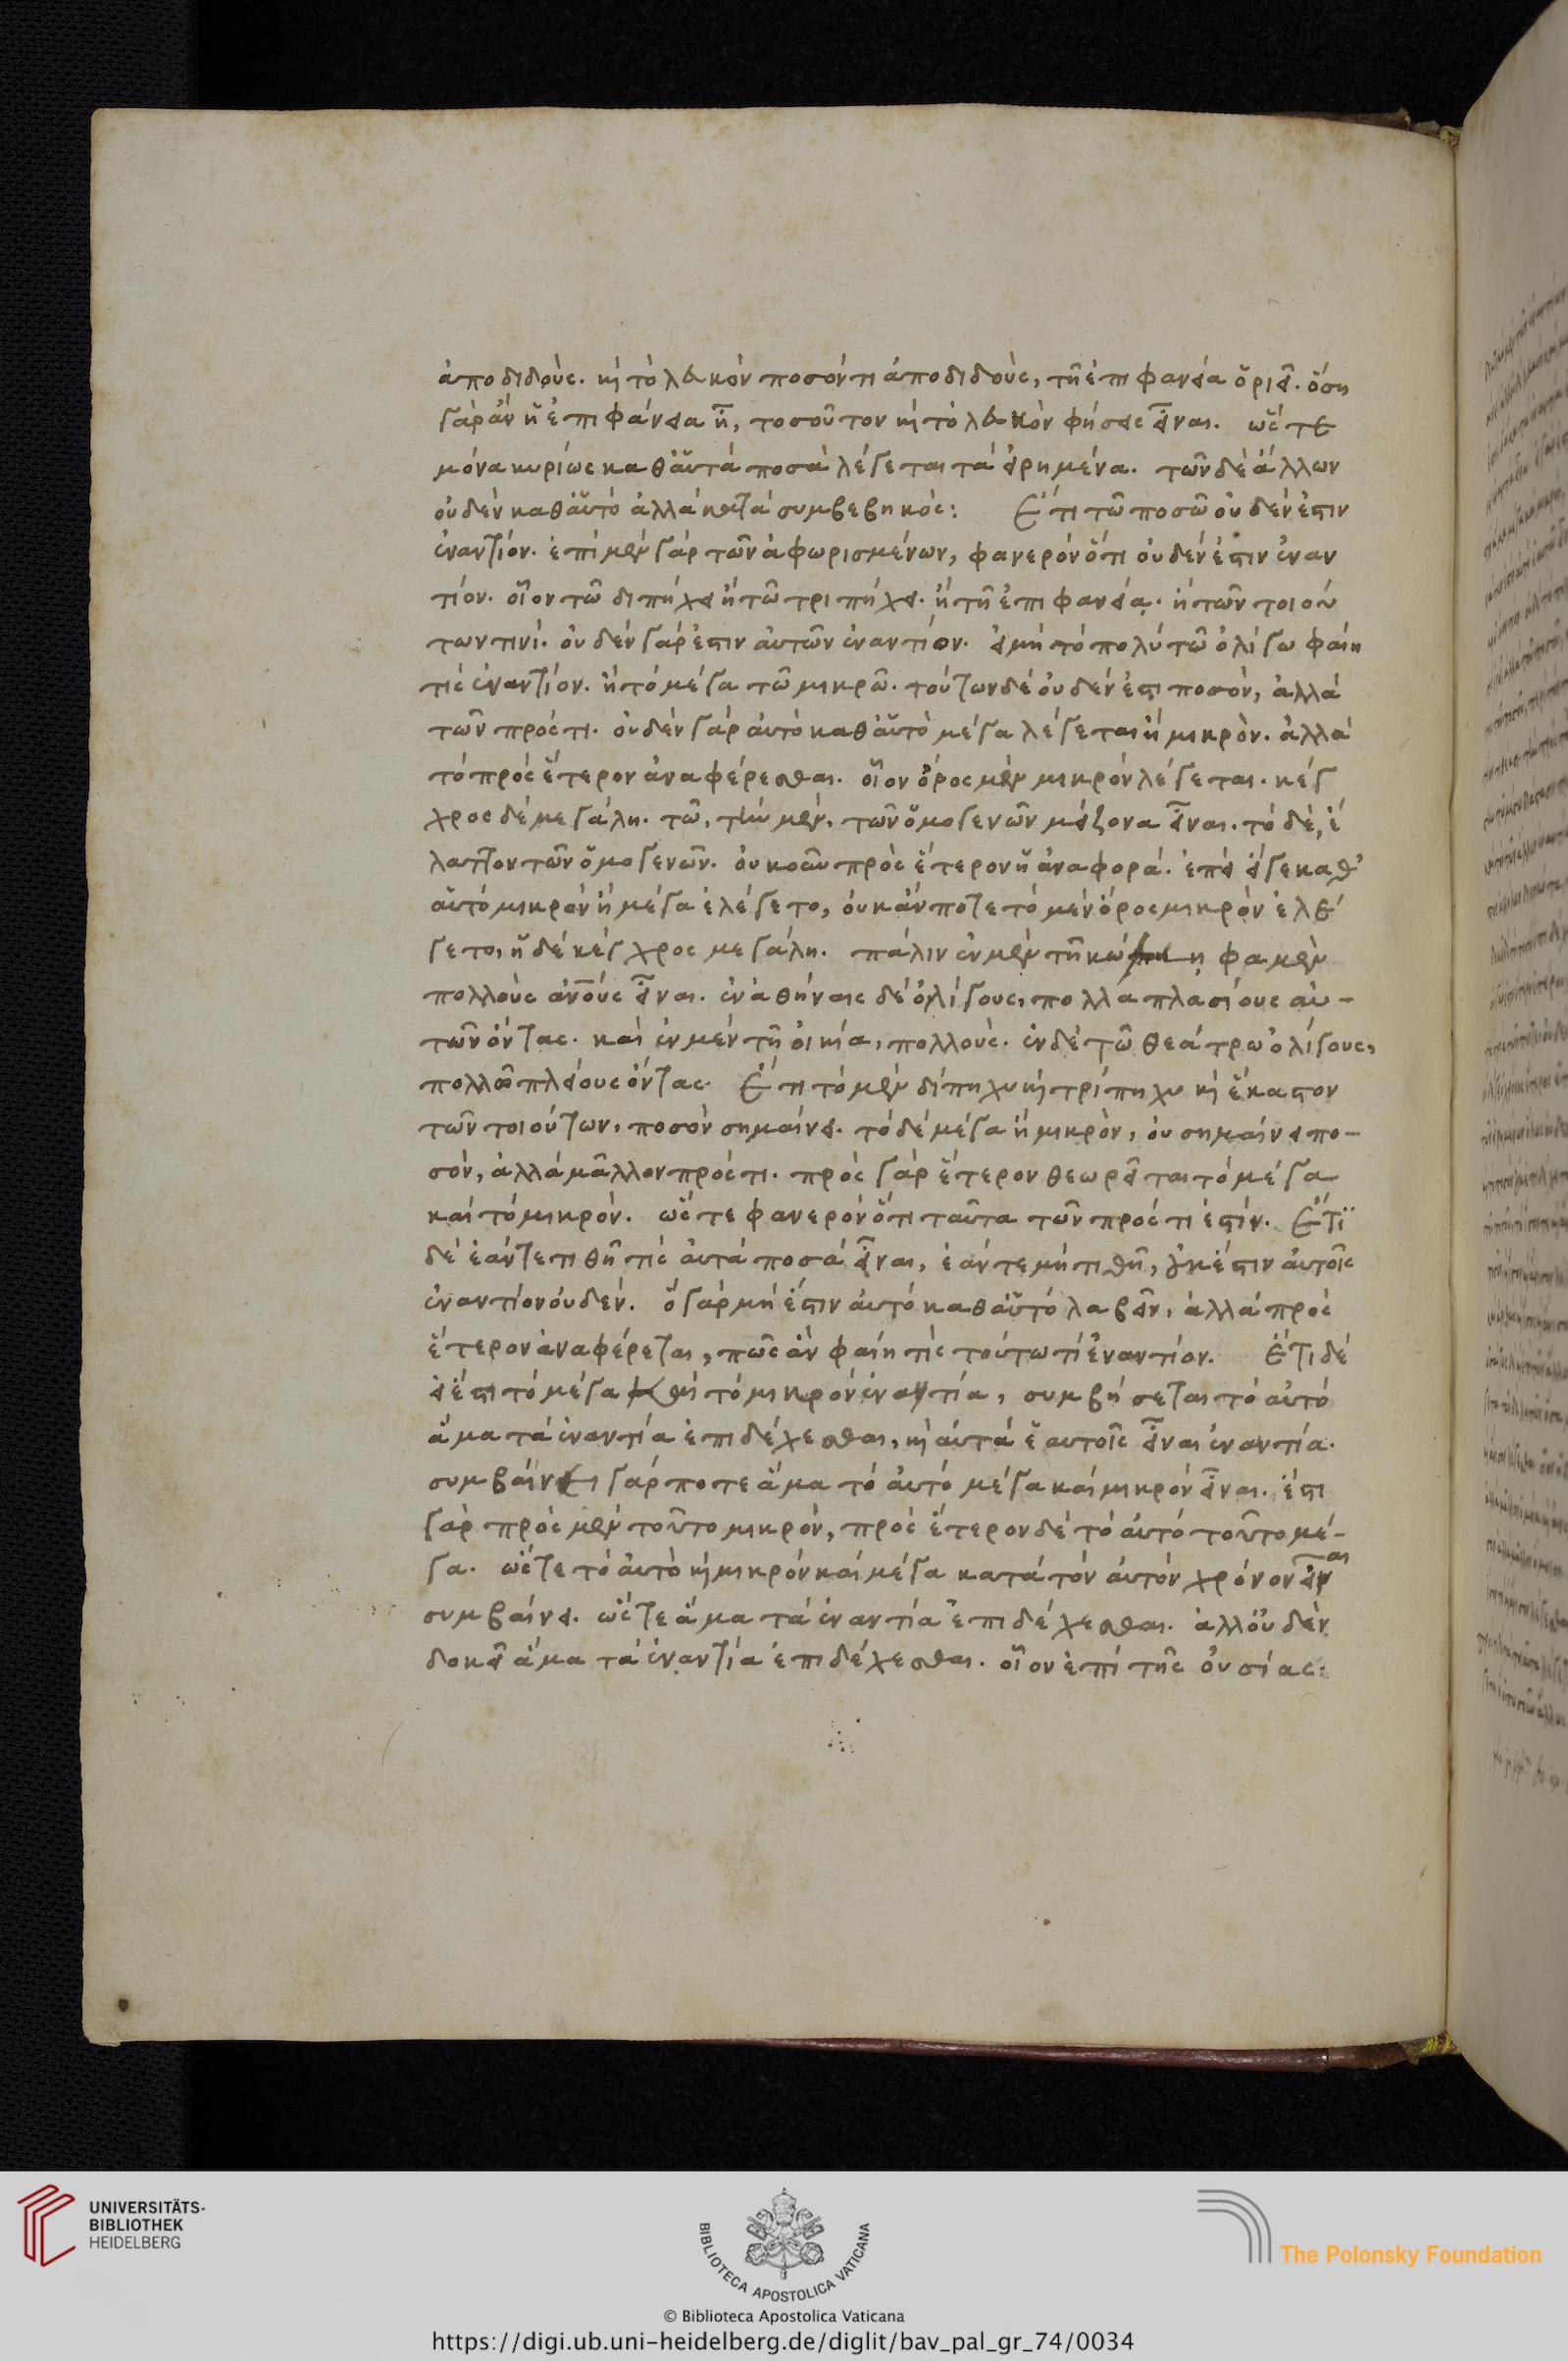 ἀποδιδοὺς. κὶ τὸ λευκὸν ποσόν τι ἀποδιδοὺς, τῆ ἐπιφανεία ὁριεῖ. ὅση
γὰρ ἂν ἡ ἐπιφάνεια ἦ, τοσοῦτον κὶ τὸ λευκὸν φήσεις εἶναι. ὥστε
μόνα κυρίως καθ' αὑτὰ ποσὰ λέγεται τὰ εἰρημένα. τῶν δὲ ἄλλων
οὐδὲν καθ' αὑτὸ ἀλλὰ κατὰ συμβεβηκός: Ἔτι τῶ ποσῶ οὐδέν ἐστιν
ἐναντίον. ἐπὶ μὲν γὰρ τῶν ἀφωρισμένων, φανερὸν ὅτι οὐδέν ἐστιν ἐναν
τίον. οἷον τῶ διπήχει ἢ τῶ τριπήχει. ἢ τῆ ἐπιφανεία. ἢ τῶν τοιού
των τινί. οὐδὲν γάρ ἐστιν αὐτῶν ἐναντίον. εἰ μὴ τὸ πολὺ τῶ ὀλίγω φαίη
τις ἐναντίον. ἢ τὸ μέγα τῶ μικρῶ. τούτων δὲ οὐδέν ἐστι ποσὸν, ἀλλὰ
τῶν πρός τι. οὐδὲν γὰρ αὐτὸ καθ' αὑτὸ μέγα λέγεται ἢ μικρὸν. ἀλλὰ
τὸ πρὸς ἕτερον ἀναφέρεσθαι. οἷον ὄρος μὲν μικρὸν λέγεται. κέγ
χρος δὲ μεγάλη. τῶ, τὴν μὲν, τῶν ὁμογενῶν μείζονα εἶναι. τὸ δὲ, ἔ
λαττον τῶν ὁμογενῶν. οὐκοῦν πρὸς ἕτερον ἡ ἀναφορά. ἐπεὶ εἴγε καθ'
αὑτὸ μικρὸν ἢ μέγα ἐλέγετο, οὐκ ἄν ποτε τὸ μὲν ὄρος μικρὸν ἐλέ
γετο, ἡ δὲ κέγχρος μεγάλη. πάλιν ἐν μὲν τῆ κώμη φαμὲν
πολλοὺς ἀνους εἶναι. ἐν ἀθήναις δὲ ὀλίγους, πολλαπλασίους αὐ-
τῶν ὄντας. καὶ ἐν μὲν τῆ οἰκία, πολλοὺς. ἐν δὲ τῶ θεάτρω ὀλίγους,
πολλῶ πλείους ὄντας. Ἔτι τὸ μὲν δίπηχυ κὶ τρίπηχυ κὶ ἕκαστον
τῶν τοιούτων, ποσὸν σημαίνει. τὸ δὲ μέγα ἢ μικρὸν, οὐ σημαίνει πο-
σὸν, ἀλλὰ μᾶλλον πρός τι. πρὸς γὰρ ἕτερον θεωρεῖται τὸ μέγα
καὶ τὸ μικρὸν. ὥστε φανερὸν ὅτι ταῦτα τῶν πρός τι ἐστίν. Ἔτι
δὲ ἐάν τε τιθῆ τις αὐτὰ ποσὰ εἶναι, ἐάν τε μὴ τιθῆ, οὐκ ἔστιν αὐτοῖς
ἐναντίον οὐδέν. ὃ γὰρ μὴ ἔστιν αὐτὸ καθ' αὑτὸ λαβεῖν, ἀλλὰ πρὸς
ἕτερον ἀναφέρεται, πῶς ἂν φαίη τις τούτω τι ἐναντίον. Ἔτι δὲ
εἰ ἔστι τὸ μέγα κὶ τὸ μικρὸν ἐναντία, συμβήσεται τὸ αὐτὸ
ἅμα τὰ ἐναντία ἐπιδέχεσθαι, κὶ αὐτὰ ἑαυτοῖς εἶναι ἐναντία.
συμβαίνει γάρ ποτε ἅμα τὸ αὐτὸ μέγα καὶ μικρὸν εἶναι. ἔστι
γὰρ πρὸς μὲν τοῦτο μικρὸν, πρὸς ἕτερον δὲ τὸ αὐτὸ τοῦτο μέ-
γα. ὥστε τὸ αὐτὸ κὶ μικρὸν καὶ μέγα κατὰ τὸν αὐτὸν χρόνον εἶναι
συμβαίνει. ὥστε ἅμα τὰ ἐναντία ἐπιδέχεσθαι. ἀλλ' οὐδὲν
δοκεῖ ἅμα τὰ ἐναντία ἐπιδέχεσθαι. οἷον ἐπὶ τῆς οὐσίας:
UNIVERSITÄTS-
BIBLIOTHEK
HEIDELBERG
BIBLIOTECA APOSTOLICA VATICANA
The Polonsky Foundation
© Biblioteca Apostolica Vaticana
https://digi.ub.uni-heidelberg.de/diglit/bav_pal_gr_74/0034